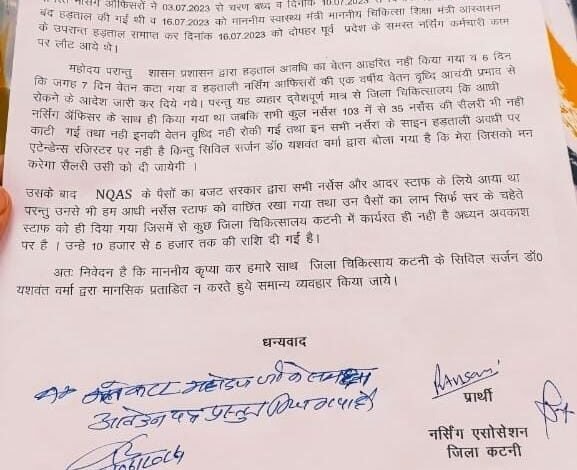 नर्सिंग ऑफिसरों ने 03.07.2023 से चरण बध्द व दिनांक 10.07.2023 से
बंद हड़ताल की गई थी व 16.07.2023 को माननीय स्वास्थ्य मंत्री माननीय चिकित्सा शिक्षा मंत्री आस्वासन
के उपरान्त हड़ताल समाप्त कर दिनांक 16.07.2023 को दोपहर पूर्व प्रदेश के समस्त नर्सिंग कर्मचारी काम
पर लौट आये थे।
महोदय परान्तु शासन प्रशासन द्वारा हड़ताल अवधि का बेतन आहरित नही किया गया व 6 दिन
कि जगह 7 दिन वेतन कटा गया व हड़ताली नर्सिंग आफिसरों की एक वर्षीय वेतन वृध्दि आचंयी प्रभाव से
रोकने के आदेश जारी कर दिये गये। परन्तु यह व्यहार द्वेशपूर्ण मात्र से जिला चिकित्सालय कि आधी
नर्सिंग ऑफिसर के साथ ही किया गया था जबकि सभी कुल नर्सेस 103 में से 35 नर्सेस की सैलरी भी नही
काटी गई तथा नही इनकी वेतन वृध्दि नही रोकी गई तथा इन सभी नर्सेस के साइन हड़ताली अवधी पर
एटेन्डेन्स रजिस्टर पर नही है किन्तु सिविल सर्जन डॉ0 यशवंत वर्मा द्वारा बोला गया है कि मेरा जिसको मन
करेगा सैलरी उसी को दी जायेगी ।
उसके बाद NQAS के पैसों का बजट सरकार द्वारा सभी नर्सेस और आदर स्टाफ के लिये आया था
परन्तु उनसे भी हम आधी नर्सेस स्टाफ को वांछित रखा गया तथा उन पैसों का लाभ सिर्फ सर के चहेते
स्टाफ को ही दिया गया जिसमें से कुछ जिला चिकित्सालय कटनी में कार्यरत ही नही है अध्यन अवकाश
पर है । उन्हे 10 हजार से 5 हजार तक की राशि दी गई है।
अतः निवेदन है कि माननीय कृप्या कर हमारे साथ जिला चिकित्साय कटनी के सिविल सर्जन डॉ0
यशवंत वर्मा द्वारा मानसिक प्रताडित न करते हुये समान्य व्यवहार किया जाये।
धन्यवाद
महोदय जी के समक्ष
आवेदन पत्र प्रस्तुत किया गया है।
प्रार्थी
नर्सिंग एसोसेशन
जिला कटनी